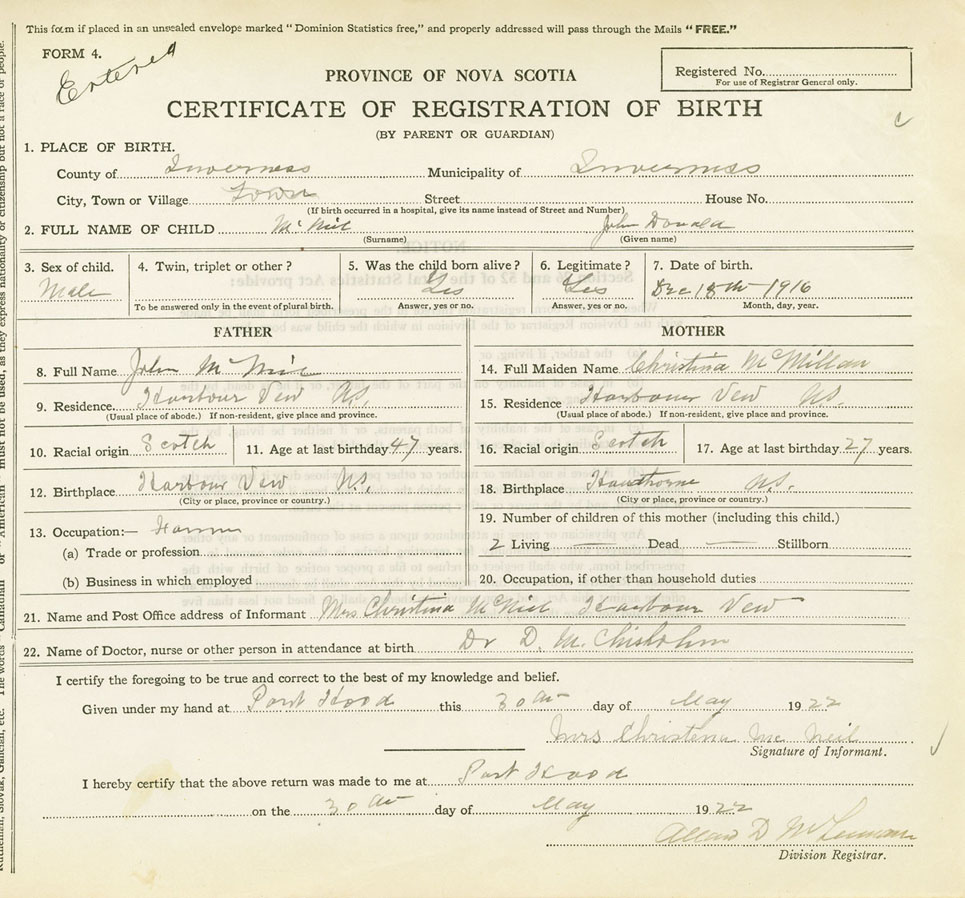 This form if placed in an unsealed envelope marked "Dominion Statistics free," and properly addressed will pass through the Mails "FREE."
FORM 4.
Entered
PROVINCE OF NOVA SCOTIA
Registered No.
For use of Registrar General only.
CERTIFICATE OF REGISTRATION OF BIRTH
(BY PARENT OR GUARDIAN)
1. PLACE OF BIRTH.
County of Inverness Municipality of Inverness
City, Town or Village Town Street House No.
(If birth occurred in a hospital, give its name instead of Street and Number)
2. FULL NAME OF CHILD McNeil John Donald
(Surname) (Given name)
3. Sex of child. 4. Twin, triplet or other? 5. Was the child born alive? 6. Legitimate? 7. Date of birth.
Male Yes Yes Dec 18th 1916
To be answered only in the event of plural birth. Answer, yes or no. Answer, yes or no. Month, day, year.
FATHER MOTHER
8. Full Name John McNeil 14. Full Maiden Name Christina McMillan
9. Residence. Harbour View N.S. 15. Residence Harbour View N.S.
(Usual place of abode.) If non-resident, give place and province. (Usual place of abode.) If non-resident, give place and province.
10. Racial origin Scotch 11. Age at last birthday 47 years. 16. Racial origin Scotch 17. Age at last birthday 27 years.
12. Birthplace Harbour View N.S. 18. Birthplace Hawthorne N.S.
(City or place, province or country.) (City or place, province or country.)
13. Occupation:— Farmer 19. Number of children of this mother (including this child.)
(a) Trade or profession 2 Living — Dead — Stillborn
(b) Business in which employed 20. Occupation, if other than household duties
21. Name and Post Office address of Informant Mrs Christina McNeil Harbour View
22. Name of Doctor, nurse or other person in attendance at birth Dr D. M. Chisholm
I certify the foregoing to be true and correct to the best of my knowledge and belief.
Given under my hand at Port Hood this 30th day of May 1922
Mrs Christena McNeil
Signature of Informant.
I hereby certify that the above return was made to me at Port Hood
on the 30th day of May 1922
D
Division Registrar.